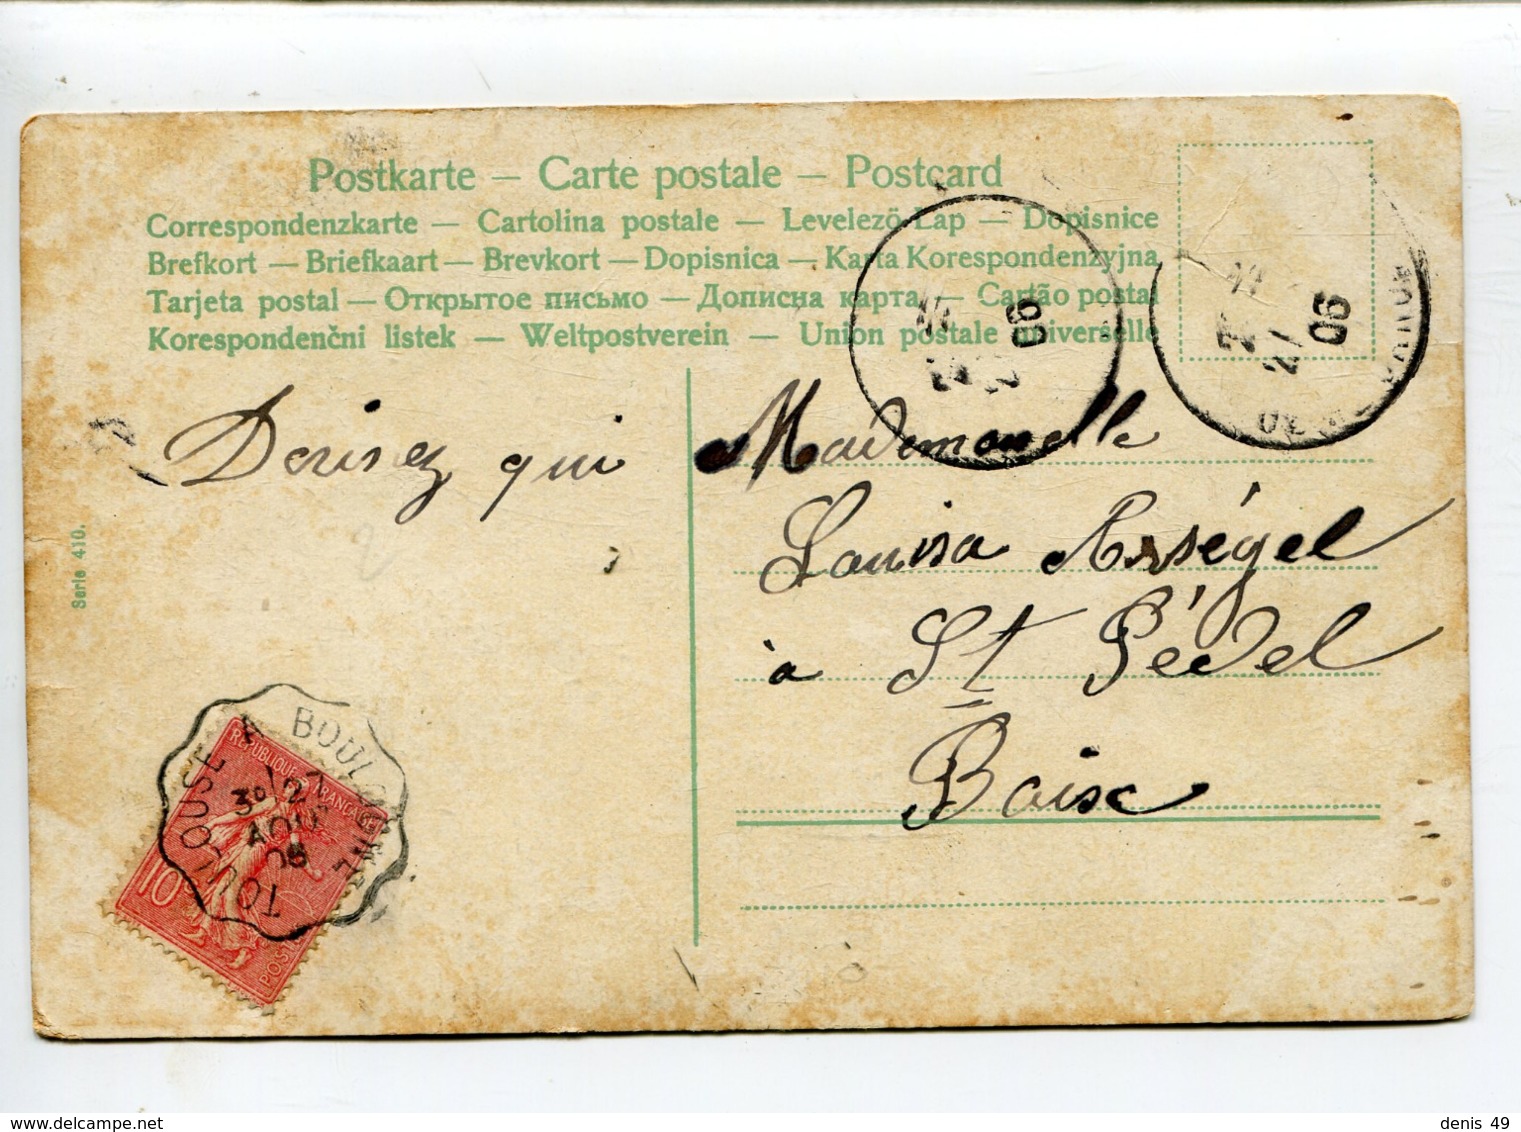 Postkarte – Carte postale – Postcard
Correspondenzkarte – Cartolina postale – Levelező-Lap – Dopisnice
Brefkort – Briefkaart – Brevkort – Dopisnica – Karta Korespondenzyjna
Tarjeta postal – Открытое письмо – Дописна карта – Cartão postal
Korespondenční listek – Weltpostverein – Union postale universelle
Devinez qui
Mademoiselle
Louisa Arségel
à St Pé del
Boisc
Serie 410.
TOULOUSE A BOULOGNE
30 12
AOU
06
REPUBLIQUE FRANCAISE
10
POST
06
27
06
denis 49